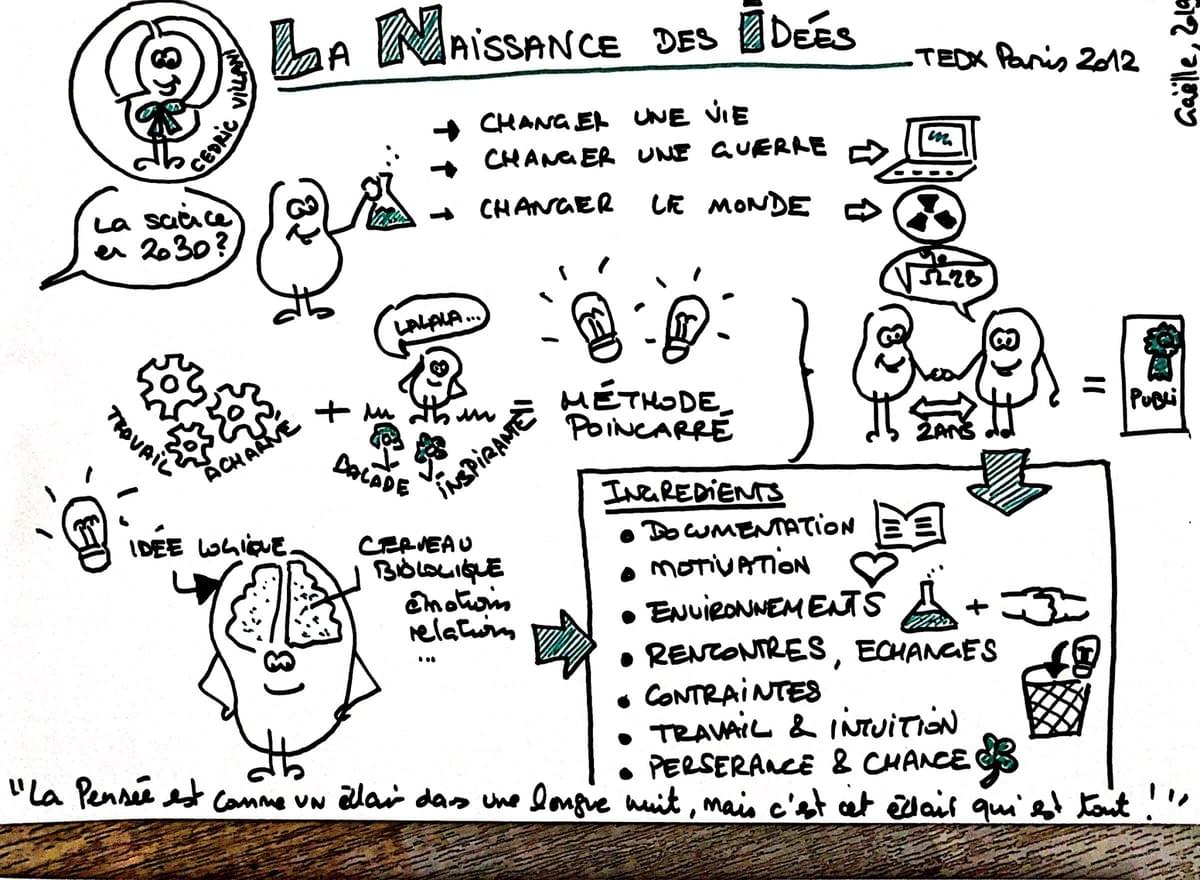 LA NAISSANCE DES IDÉÉS
TEDX Paris 2012
Gaëlle, 2019
CEDRIC VILLANI
La science
en 2030?
→ CHANGER UNE VIE
→ CHANGER UNE GUERRE
→ CHANGER LE MONDE
LALALA...
TRAVAIL
ACHARNÉ
+
BALADE
INSPIRANTE
=
MÉTHODE
POINCARRÉ
2 ANS
=
PUBLI
IDÉE LOGIQUE
CERVEAU
BIOLOGIQUE
émotions
relations
...
INGREDIENTS
• DOCUMENTATION
• MOTIVATION
• ENVIRONNEMENTS +
• RENCONTRES, ECHANGES
• CONTRAINTES
• TRAVAIL & INTUITION
• PERSERANCE & CHANCE
"La Pensée est comme un éclair dans une longue nuit, mais c'est cet éclair qui est tout !"